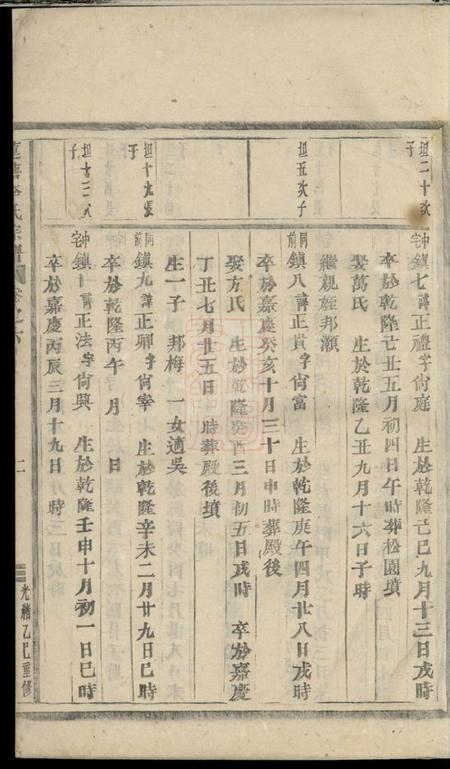 坦二十次子
中宅鎮七諱正禮字尙庭　生於乾隆己巳九月十三日戌時
卒於乾隆己丑五月初四日午時葬松園墳
娶萬氏　生於乾隆乙丑九月十六日子時
繼親姪邦灝
坦五次子
同前鎮八諱正貴字尙富　生於乾隆庚午四月廿八日戌時
卒於嘉慶癸亥十月三十日申時葬殿後
娶方氏　生於乾隆癸酉三月初五日戌時　卒於嘉慶
丁丑七月廿五日　時葬殿後墳
生一子　邦梅　一女適吳
坦十九長子
同前鎮九諱正卿字尙宰　生於乾隆辛未二月廿九日巳時
卒於乾隆丙午　月　日
坦十三次子
中宅鎮十諱正法字尙興　生於乾隆壬申十月初一日巳時
卒於嘉慶丙辰三月十九日　時
氏宗譜　卷之六　二　光緖乙巳重修